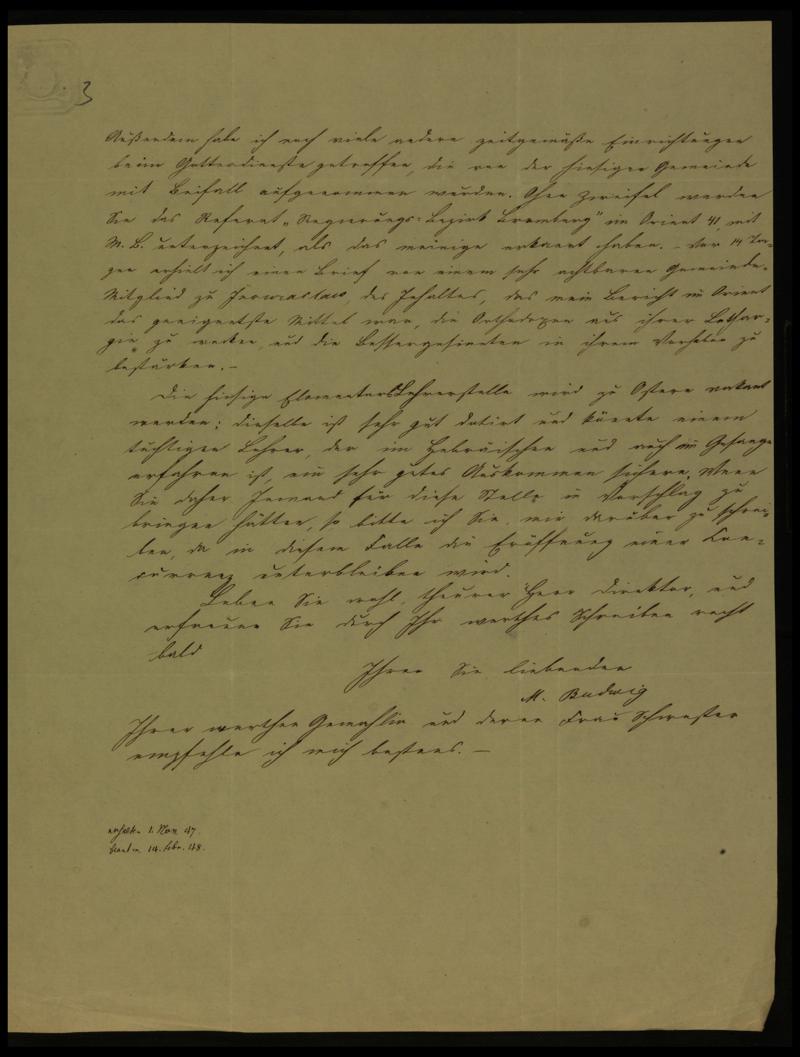 3
Außerdem habe ich noch viele andere zeitgemäße Einrichtungen
beim Gottesdienste getroffen, die von der hiesigen Gemeinde
mit Beifall aufgenommen wurden. Ohne Zweifel werden
Sie das Referat „Regierungs-Bezirk Bromberg" im Orient 41, mit
M. B. unterzeichnet, als das meinige erkannt haben. – Vor 14 Ta-
gen erhielt ich einen Brief von einem sehr achtbaren Gemeinde-
Mitglied zu Inowraclaw, des Inhaltes, das mein Bericht im Orient
das geeignetste Mittel war, die Orthodoxen aus ihrer Lethar-
gie zu wecken, und die Bessergesinnten in ihrem Vorhaben zu
bestärken. –
Die hiesige Elementar-Lehrerstelle wird zu Ostern vakant
werden; dieselbe ist sehr gut dotirt und könnte einem
tüchtigen Lehrer, der im Hebräischen und auch im Gesange
erfahren ist, ein sehr gutes Auskommen sichern. Wenn
Sie daher Jemand für diese Stelle in Vorschlag zu
bringen hätten, so bitte ich Sie, mir darüber zu schrei-
ben, da in diesem Falle die Eröffnung einer Con-
currenz unterbleiben wird.
Leben Sie wohl, theurer Herr Direktor, und
erfreuen Sie durch Ihr werthes Schreiben recht
bald
Ihren Sie liebenden
M. Budwig
Ihrer werthen Gemahlin und deren Frau Schwester
empfehle ich mich bestens. –
erhalten 1. Nov. 47.
14. Febr. 48.